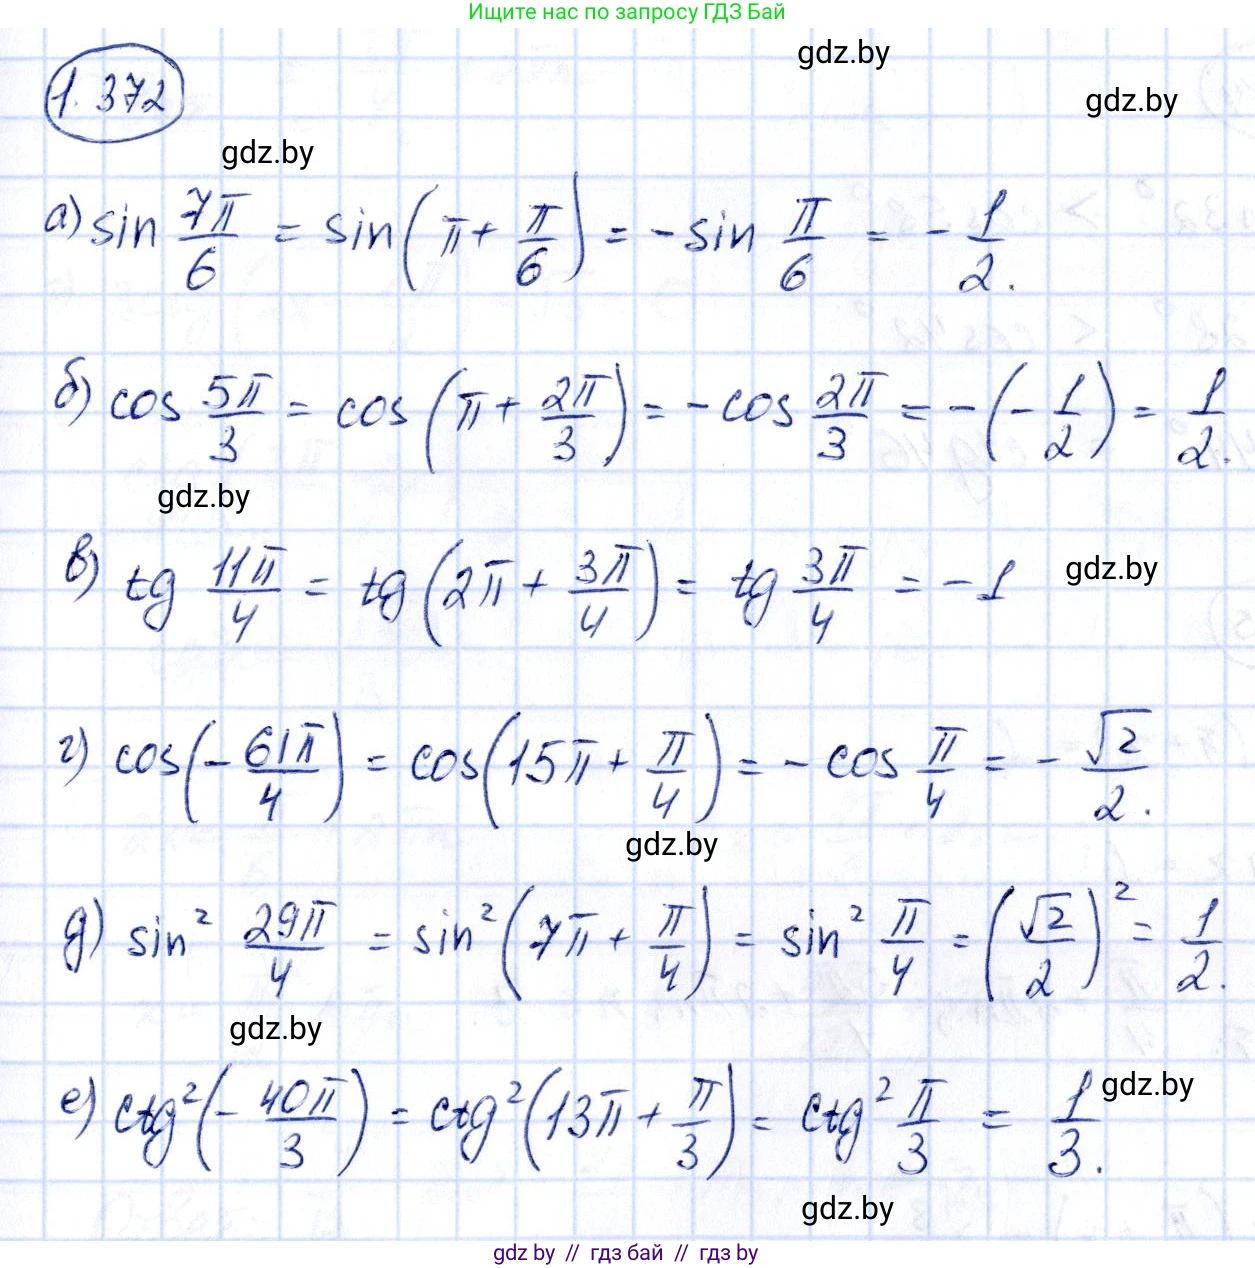 Ищите нас по запросу ГДЗ Бай
gdz.by
1.372
gdz.by
gdz.by
а) sin 7π/6 = sin(π + π/6) = -sin π/6 = -1/2.
б) cos 5π/3 = cos(π + 2π/3) = -cos 2π/3 = -(-1/2) = 1/2.
gdz.by
в) tg 11π/4 = tg(2π + 3π/4) = tg 3π/4 = -1
gdz.by
г) cos(-61π/4) = cos(15π + π/4) = -cos π/4 = -√2/2.
gdz.by
д) sin² 29π/4 = sin²(7π + π/4) = sin² π/4 = (√2/2)² = 1/2.
gdz.by
е) ctg²(-40π/3) = ctg²(13π + π/3) = ctg² π/3 = 1/3.
gdz.by
gdz.by
gdz by // гдз бай // гдз by